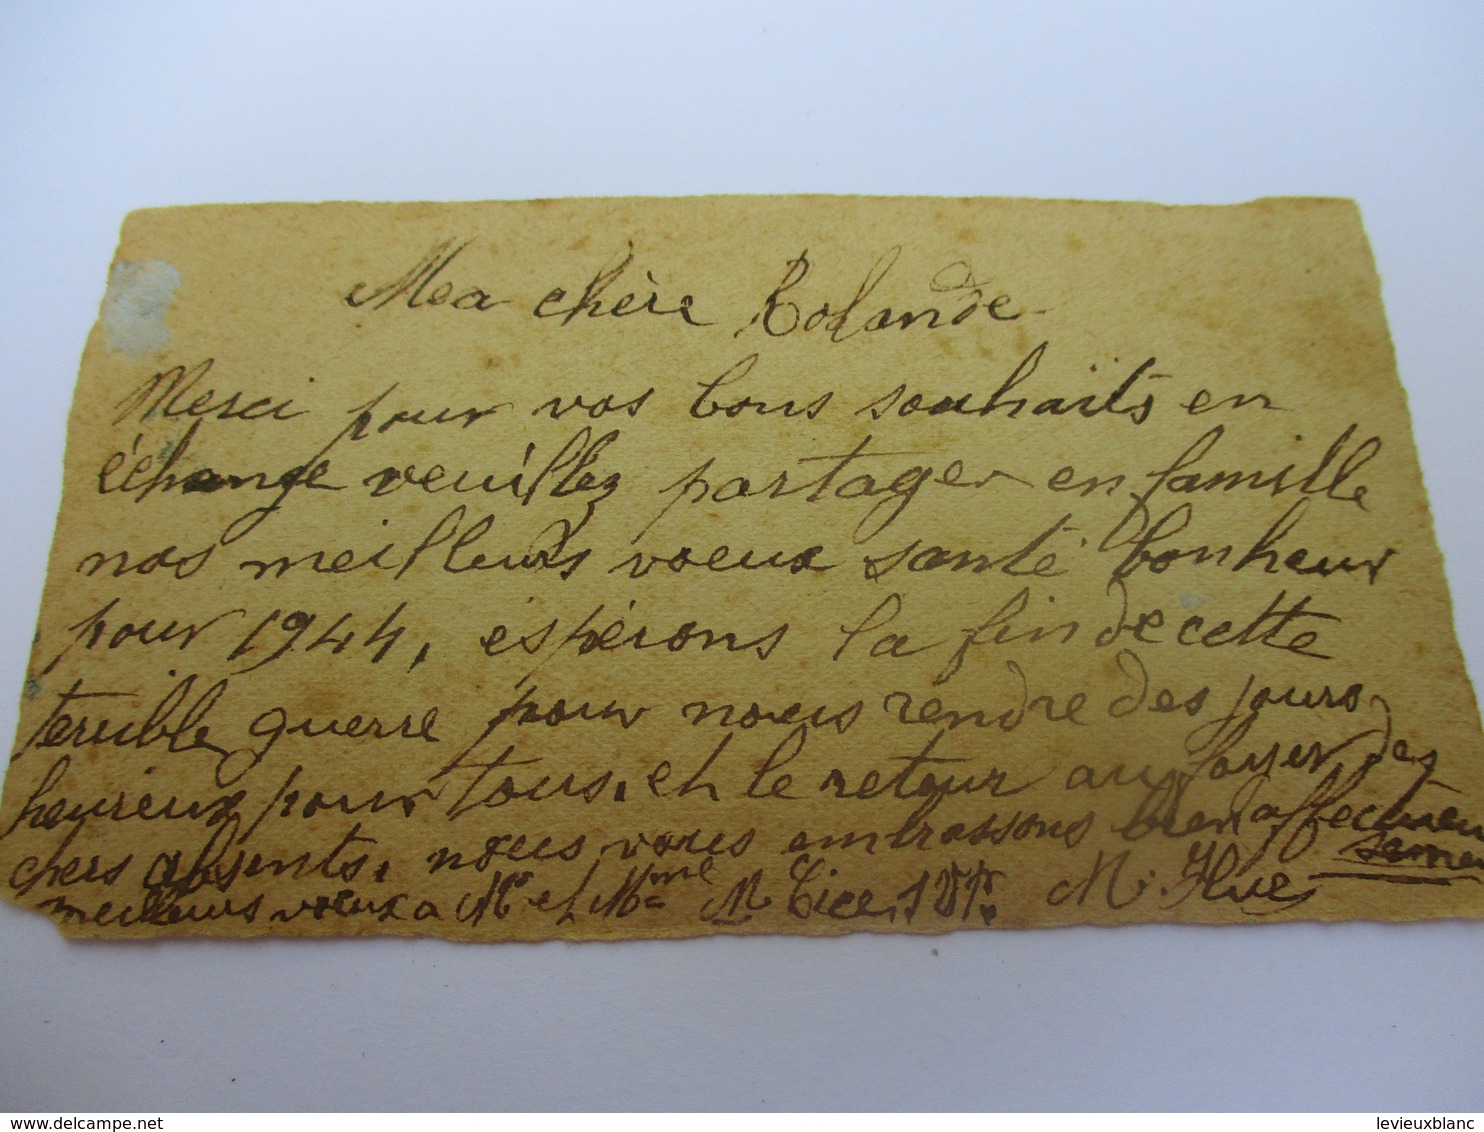 Ma chère Rolande
Merci pour vos bons souhaits en
échange veuillez partager en famille
nos meilleurs voeux santé bonheur
pour 1944, espérons la fin de cette
terrible guerre pour nous rendre des jours
heureux pour tous, et le retour au foyer des
chers absents, nous vous embrassons bien affectueu
sement
meilleurs voeux a Mr et Mme M. Hue
levieuxblanc
delcampe.net